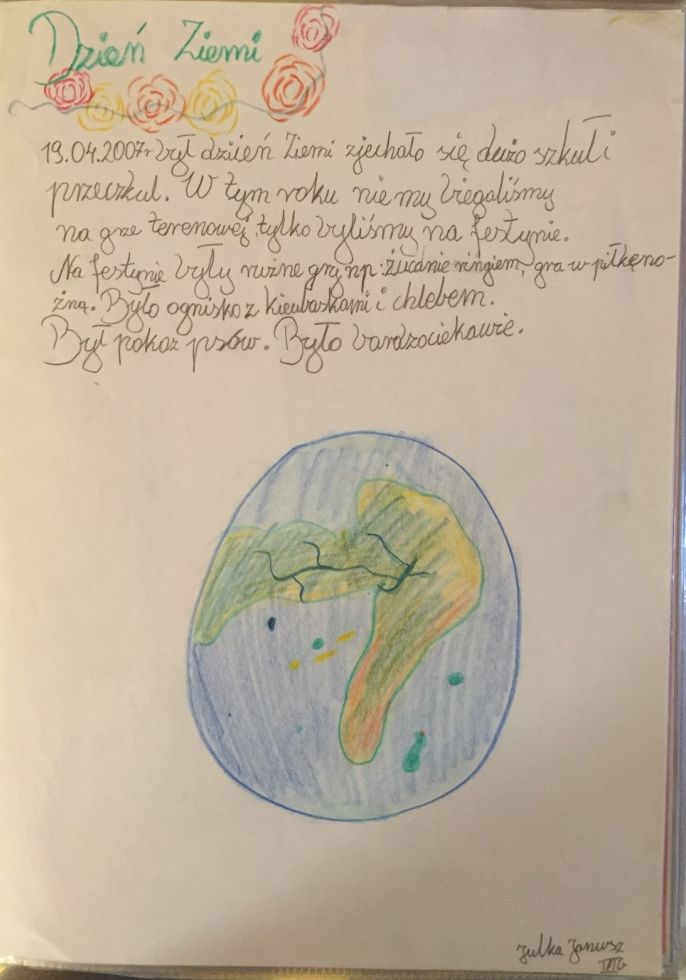 Dzień Ziemi
19.04.2007r był dzień Ziemi zjechało się dużo szkuł i
przeczkul. W tym roku nie my biegaliśmy
na grze terenowej, tylko byliśmy na festynie.
Na festynie były rużne gry np: żucanie ringiem, gra w piłkęno-
żną. Było ognisko z kieubaskami i chlebem.
Był pokaz psów. Było bardzociekawie.
Julka Janusz